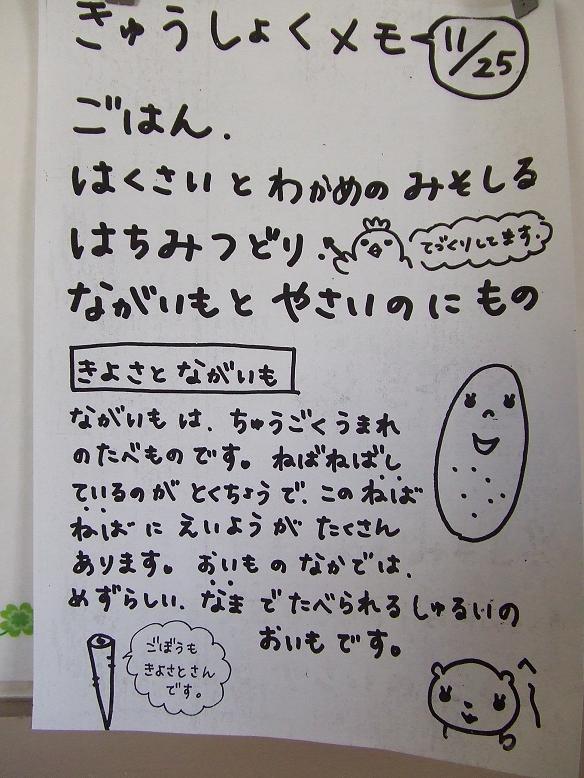 きゅうしょくメモ 11/25
ごはん.
はくさいとわかめのみそしる
はちみつどり. てづくりしてます.
ながいもとやさいのにもの
きよさとながいも
ながいもは、ちゅうごくうまれ
のたべものです。ねばねばし
ているのがとくちょうで、このねば
ねばにえいようがたくさん
あります。おいものなかでは、
めずらしい、なまでたべられるしゅるいの
おいもです。
ごぼうも
きよさとさん
です。
へー